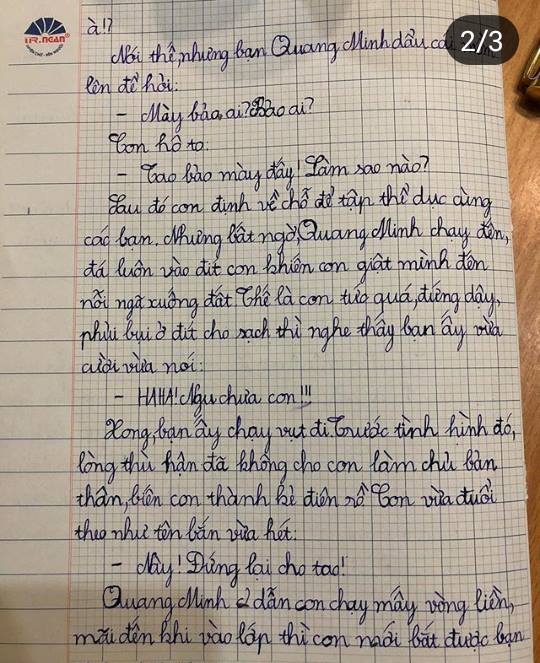 TR.NGAN
2/3
à!?
Nói thế, nhưng bạn Quang Minh dẩu cái
lên để hỏi:
- Mày bảo ai? Bảo ai?
Con hô to:
- Tao bảo mày đấy! Làm sao nào?
Sau đó con định về chỗ để tập thể dục cùng
các bạn. Nhưng bất ngờ, Quang Minh chạy đến,
đá luôn vào đít con khiến con giật mình đến
nỗi ngã xuống đất. Thế là con tức quá, đứng dậy,
phủi bụi ở đít cho sạch thì nghe thấy bạn ấy vừa
cười vừa nói:
- HAHA! Ngu chưa con!!!
Xong, bạn ấy chạy vụt đi. Trước tình hình đó,
lòng thù hận đã không cho con làm chủ bản
thân, biến con thành kẻ điên rồ. Con vừa đuổi
theo như tên bắn vừa hét:
- Này! Đứng lại cho tao!
Quang Minh 2 dẫn con chạy mấy vòng liền,
mãi đến khi vào lớp thì con mới bắt được bạn